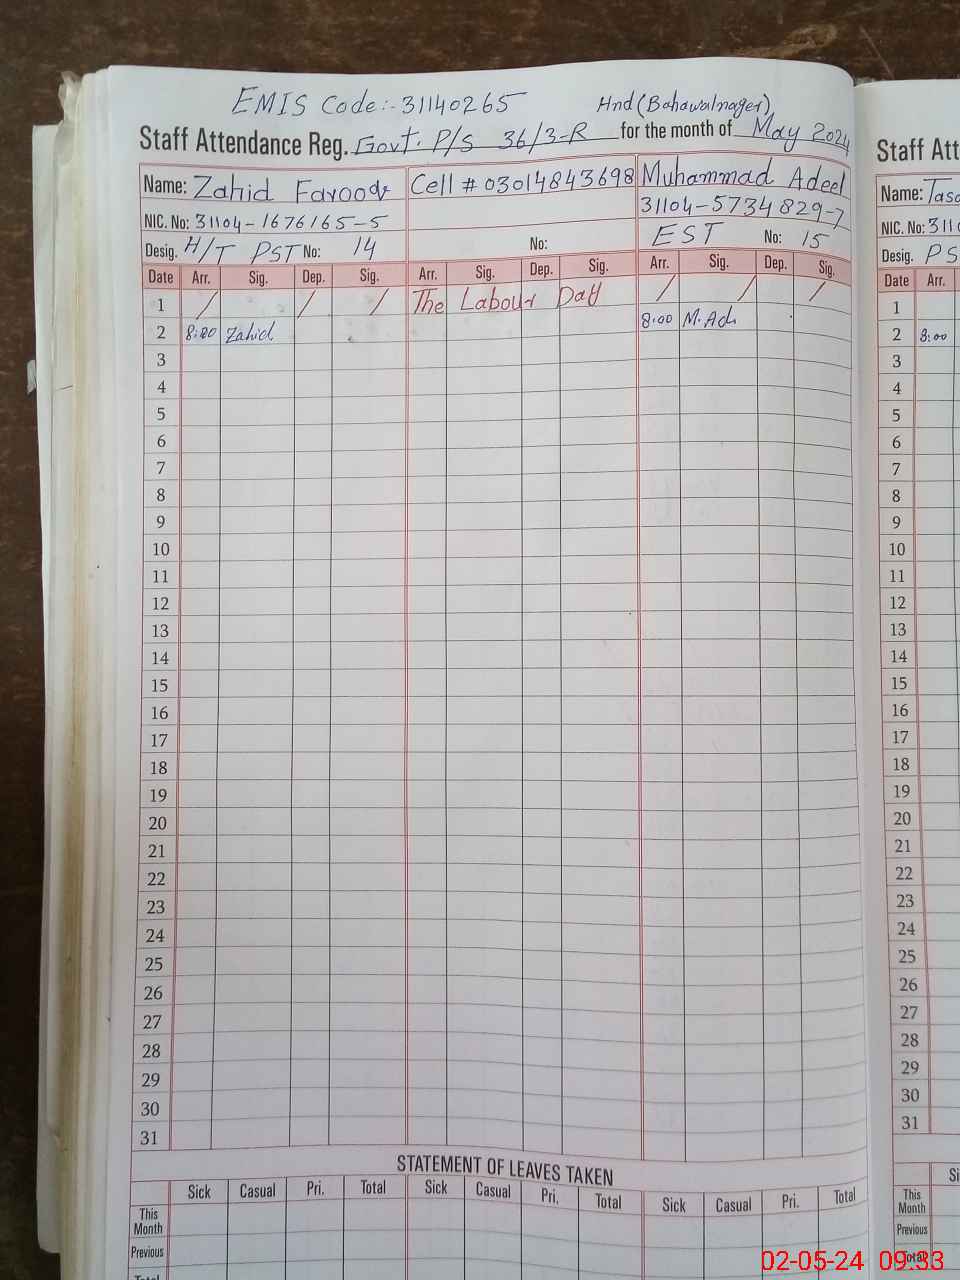 EMIS Code:- 31140265 Hnd (Bahawalnager)
Staff Attendance Reg. Govt. P/S 36/3-R for the month of May 2024
Name: Zahid Farooq Cell # 03014843698 Muhammad Adeel
NIC. No: 31104-1676165-5 31104-5734829-7
Desig. H/T PST No: 14 No: EST No: 15
Date Arr. Sig. Dep. Sig. Arr. Sig. Dep. Sig. Arr. Sig. Dep. Sig.
1 / / / The Labour Day / / /
2 8:00 Zahid 8:00 M.Ad
3
4
5
6
7
8
9
10
11
12
13
14
15
16
17
18
19
20
21
22
23
24
25
26
27
28
29
30
31
STATEMENT OF LEAVES TAKEN
Sick Casual Pri. Total Sick Casual Pri. Total Sick Casual Pri. Total
This Month
Previous
Total
Staff Att
Name: Tas
NIC. No: 311
Desig. PS
Date Arr.
1
2 8:00
3
4
5
6
7
8
9
10
11
12
13
14
15
16
17
18
19
20
21
22
23
24
25
26
27
28
29
30
31
Si
This Month
Previous
Total
02-05-24 09:33